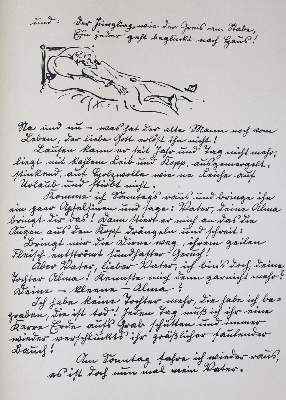 und: der Jüngling, wie der Greis am Stabe,
Ein jeder geht beglückt nach Haus!
Na und nu – was hat der alte Mann noch vom
Leben, der liebe Gott erlöst ihn nicht!
Laufen kann er seit Jahr und Tag nicht mehr,
liegt mit kahlem Leib und Kopp, ausgemergelt,
stinkend, auf Holzwolle wie ne Leiche auf
Urlaub und stirbt nicht.
Komme ich Sonntags raus und bringe ihm
ein paar Apfelsinen und sage: Vater, deine Alma
bringt dir das! Dann stiert er mich an dat die
Augen aus den Kopf drängeln und schreit:
Bringt mir die Hure weg, ihrem geilen
Fleisch entströmt sündhafter Geruch!
Aber Vater, lieber Vater, ich bin's doch, deine
Tochter Alma! Kennste denn dem garnicht mehr?
Deine – kleene – Alma?
Ich habe keine Tochter mehr, die habe ich be-
graben, die ist tod! Jeden Tag muß ich ihr eine
Karre Erde aufs Grab schütten und immer
wieder verschluckts ihr gräßlicher faulender
Bauch!
Am Sonntag fahre ich wieder raus,
es ist doch nun mal mein Vater.